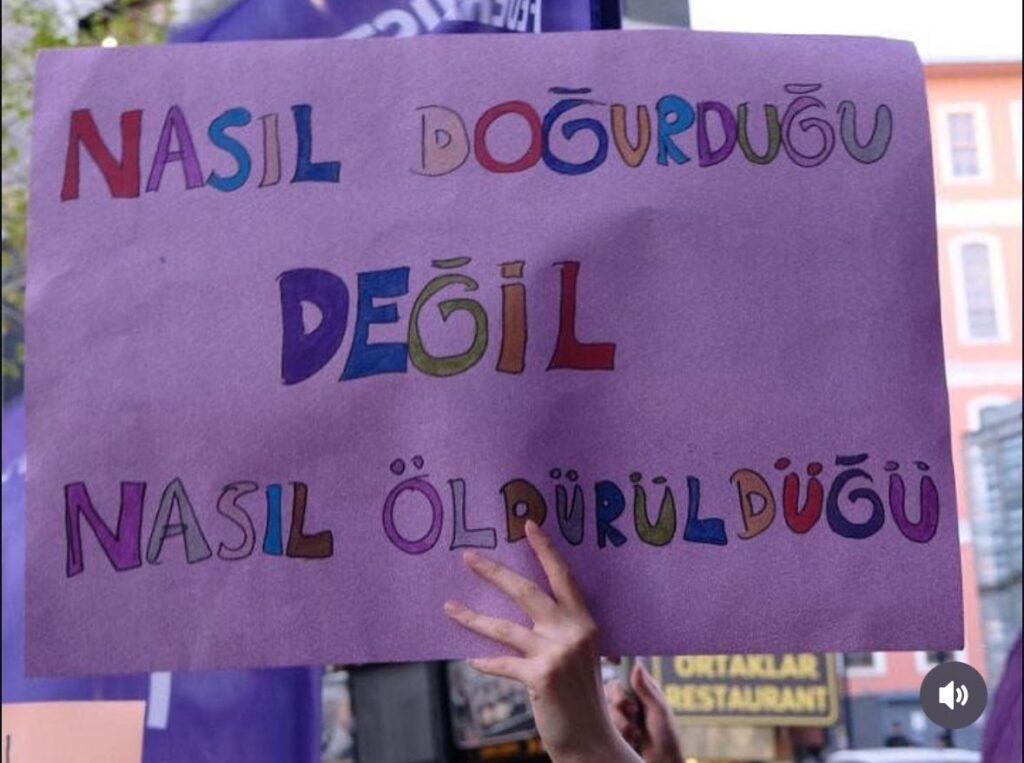 NASIL DOĞURDUĞU
DEĞİL
NASIL ÖLDÜRÜLDÜĞÜ
ORTAKLAR
RESTAURANT